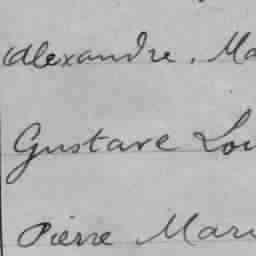 Alexandre. Ma
Gustave Lou
Pierre Mari